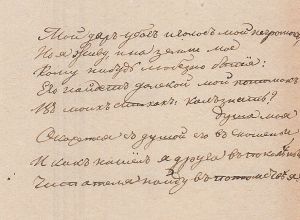 Мой даръ убогъ и голосъ мой не громокъ
Но я живу, и на земли мое
Кому нибудь любезно бытіе:
Его найдетъ далекой мой потомокъ
Въ моихъ стихахъ: какъ знать?
душа моя
Окажется съ душой его въ сношеньи
И какъ нашелъ я друга въ поколѣньи
Читателя найду въ потомствѣ я